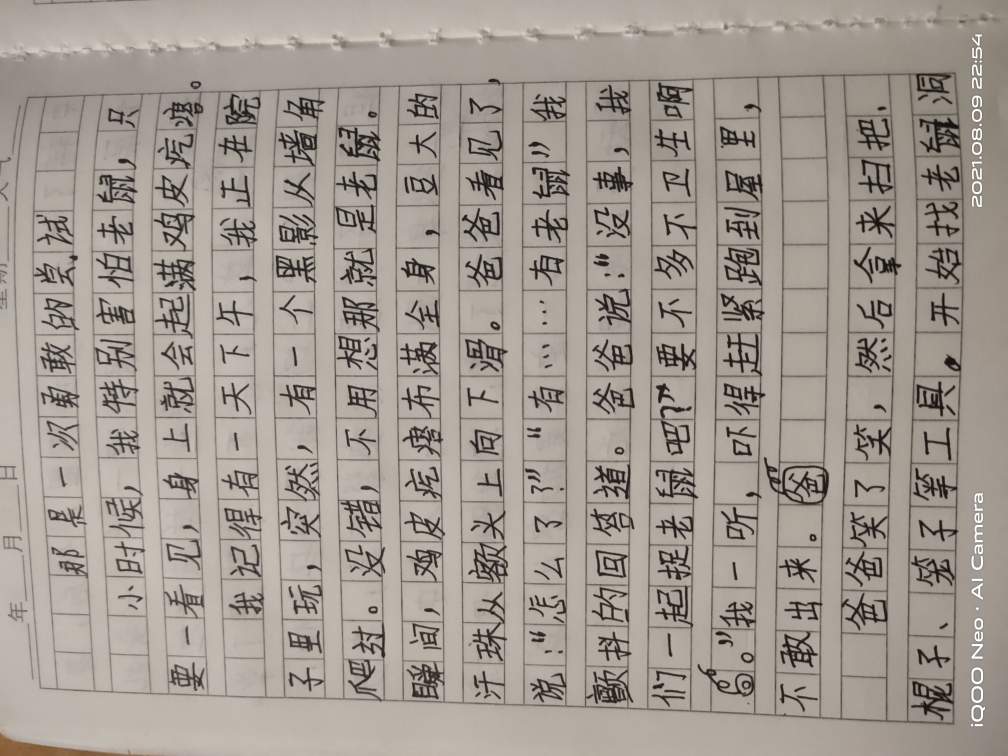 年 月 日 星期 天气
那是一次勇敢的尝试
小时候，我特别害怕老鼠，只
要一看见，身上就会起满鸡皮疙瘩。
我记得有一天下午，我正在院
子里玩，突然，有一个黑影从墙角
爬过。没错，不用想那就是老鼠。
瞬间，鸡皮疙瘩布满全身，豆大的
汗珠从额头上向下滑。爸爸看见了，
说：“怎么了？”“有……有老鼠”我
颤抖的回答道。爸爸说：“没事，我
们一起捉老鼠吧？”要不多不卫生啊
。”我一听，吓得赶紧跑到屋里，
不敢出来。爸
爸爸笑了笑，然后拿来扫把.
棍子、笼子等工具。开始找老鼠洞
iQOO Neo · AI Camera
2021.08.09 22:54